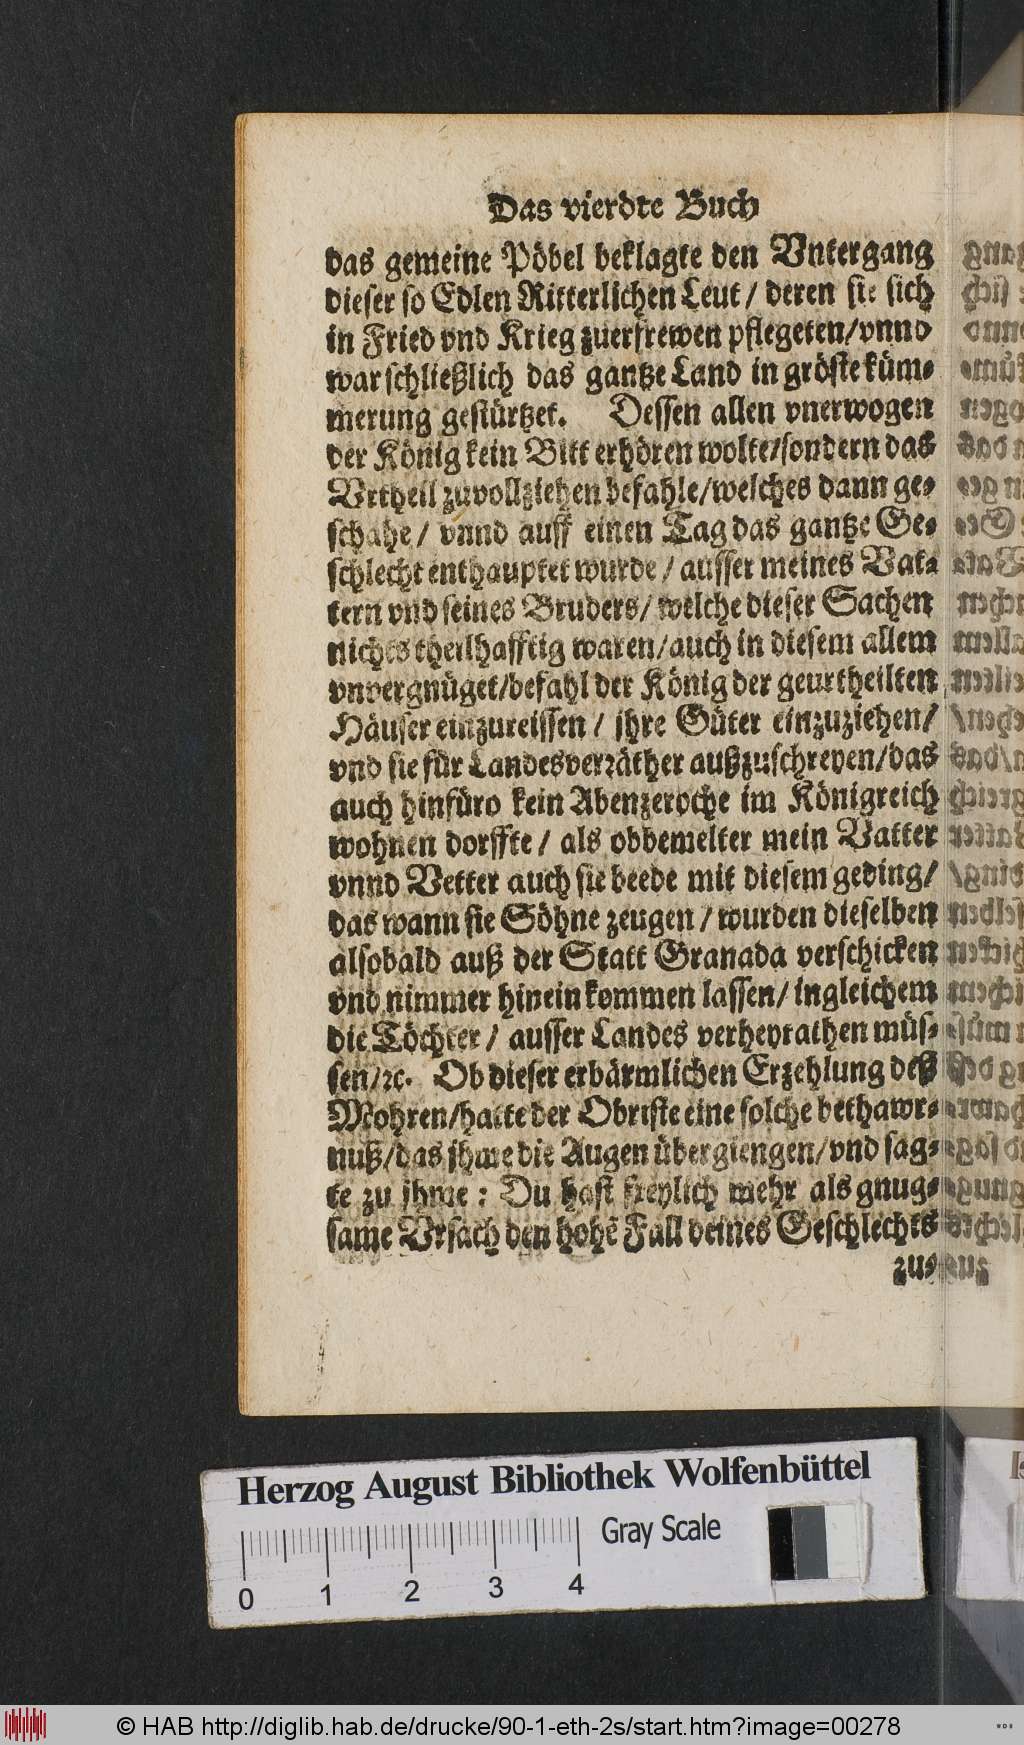 Das vierdte Buch
das gemeine Pöbel beklagte den Vntergang
dieser so Edlen Ritterlichen Leut / deren sie sich
in Fried vnd Krieg zuerfrewen pflegeten/vnnd
war schließlich das gantze Land in gröste küm-
merung gestürtzet. Dessen allen vnerwogen
der König kein Bitt erhören wolte/sondern das
Vrtheil zuvollziehen befahle/welches dann ge-
schahe / vnnd auff einen Tag das gantze Ge-
schlecht enthauptet wurde / ausser meines Vat-
tern vnd seines Bruders/ welche dieser Sachen
nichts theilhafftig waren/auch in diesem allem
vnvergnüget/befahl der König der geurtheilten
Häuser einzureissen / jhre Güter einzuziehen/
vnd sie für Landesverräther außzuschreyen/das
auch hinfüro kein Abenzeroche im Königreich
wohnen dorffte / als obbemelter mein Vatter
vnnd Vetter auch sie beede mit diesem geding/
das wann sie Söhne zeugen / wurden dieselben
alsobald auß der Statt Granada verschicken
vnd nimmer hinein kommen lassen/ ingleichem
die Töchter / ausser Landes verheyrathen müs-
sen/ꝛc. Ob dieser erbärmlichen Erzehlung deß
Mohren/hatte der Obriste eine solche bethawr-
nuß/das jhme die Augen übergiengen/vnd sag-
te zu jhme : Du hast freylich mehr als gnug-
same Vrsach den hohẽ Fall deines Geschlechts
zu-
Herzog August Bibliothek Wolfenbüttel
Gray Scale
0 1 2 3 4
© HAB http://diglib.hab.de/drucke/90-1-eth-2s/start.htm?image=00278